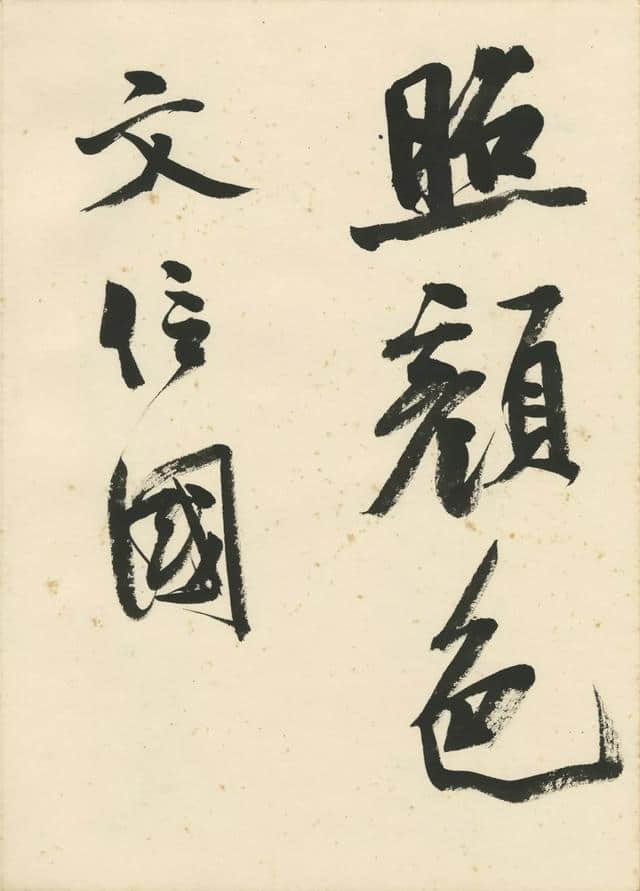 照顏色
文信國